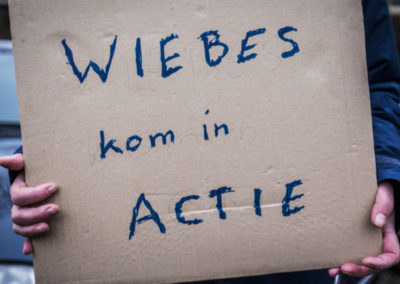 WIEBES
kom in
ACTIE